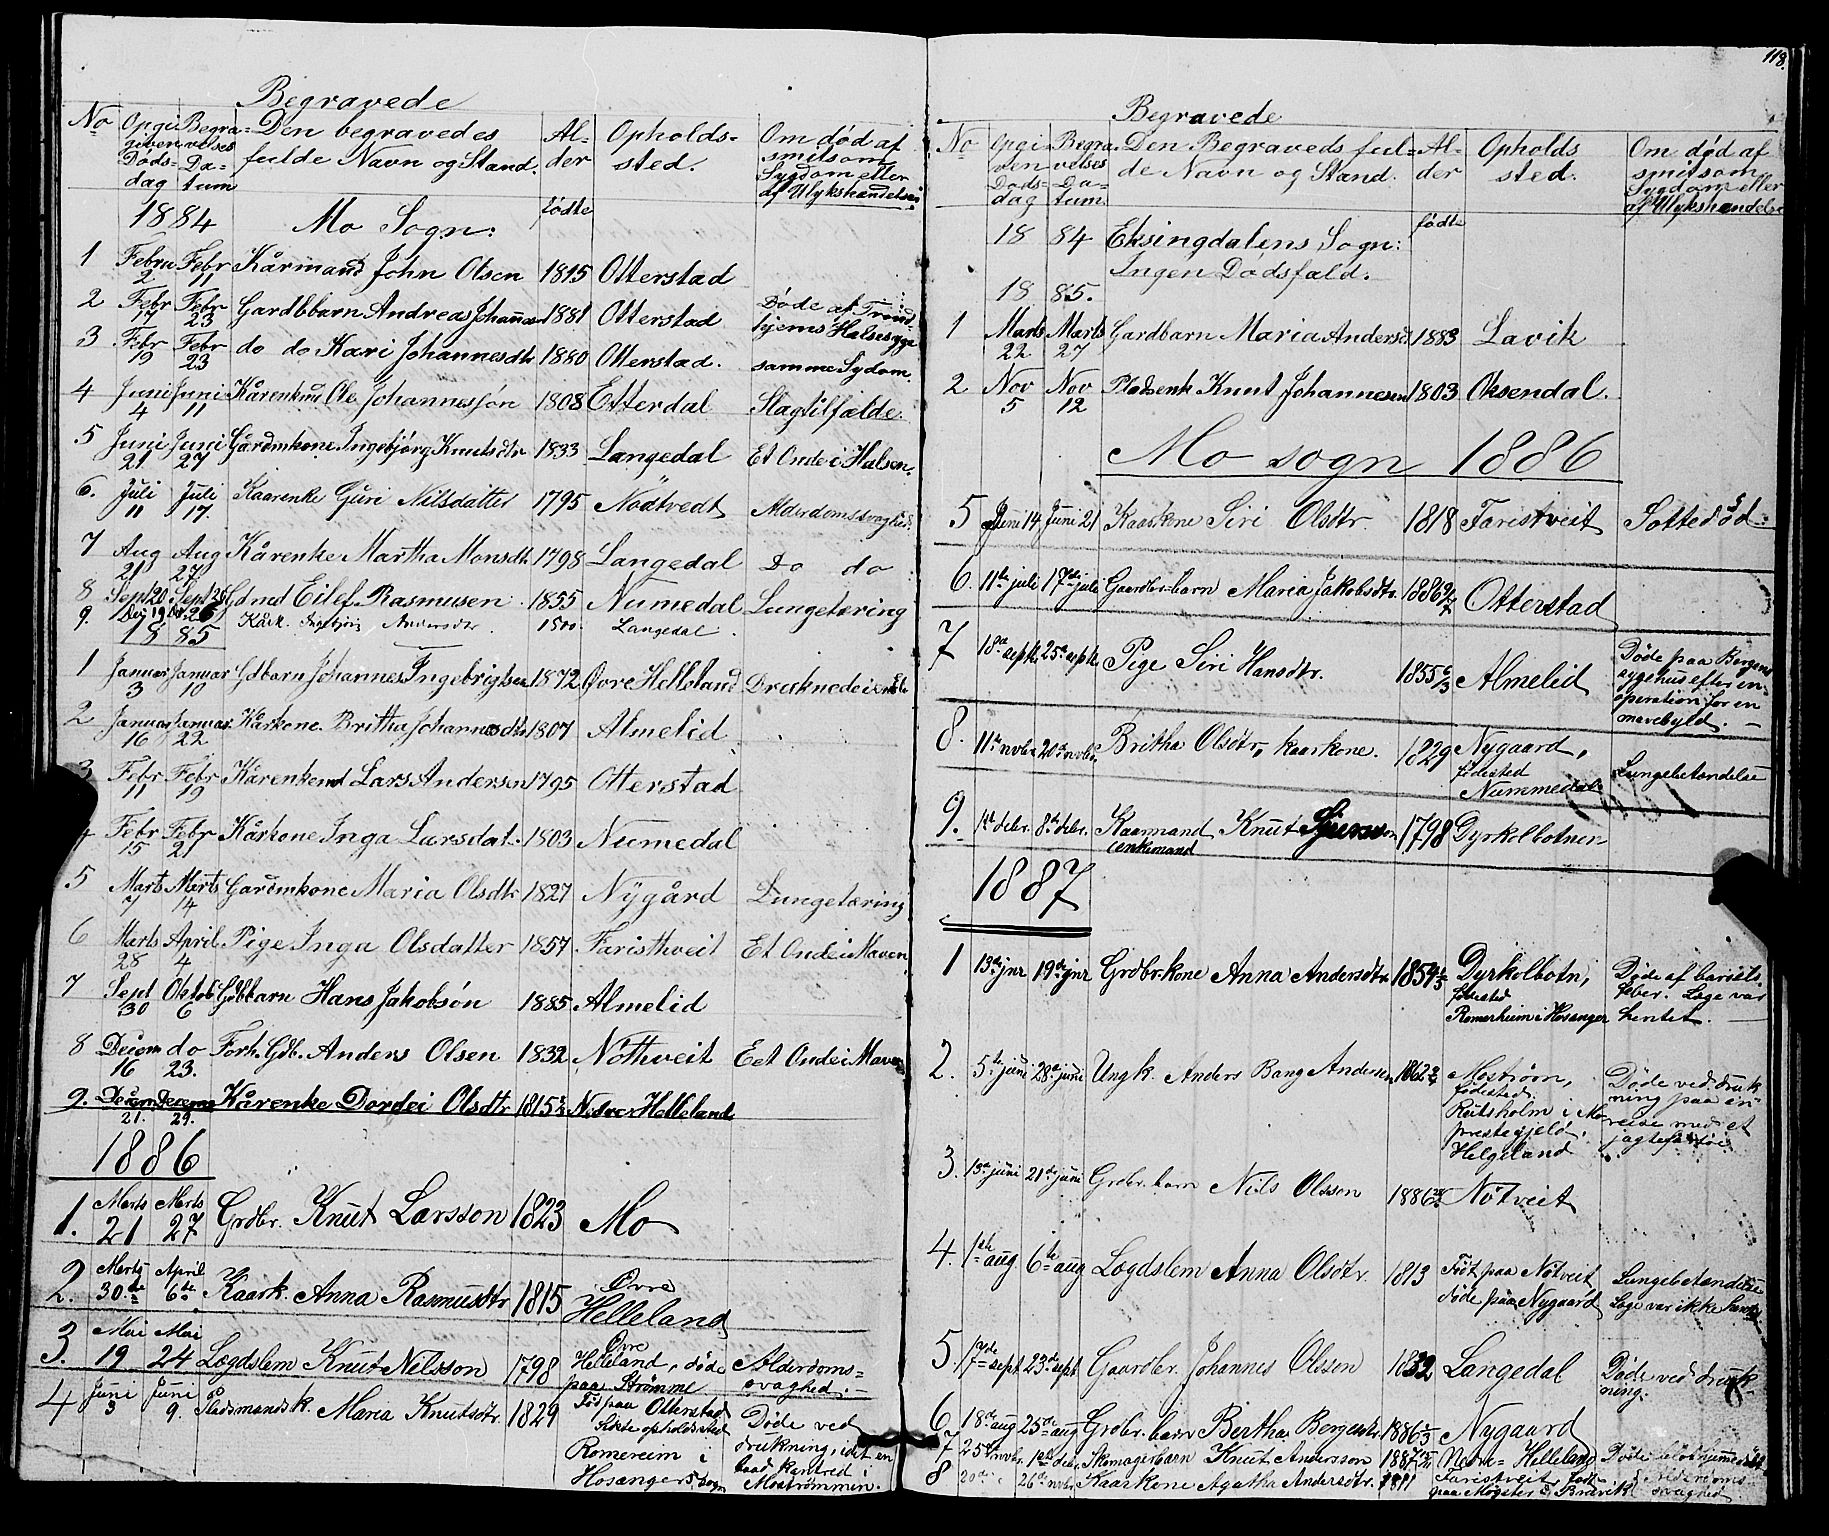 Begravede
No Opgi given Døds-dag Begra-velses Da-tum Den begravedes fulde Navn og Stand. Al-der Opholds-sted. Om død af smitsom Sygdom eller af Ulykshændelse
1884 Mo Sogn: fødte
1 Febru 2 Febr 11 Kårmand John Olsen 1815 Otterstad
2 Febr 17 Febr 23 Gardbbarn Andreas Johannes 1881 Otterstad Døde af Trond hjems Halsesyge
3 Febr 19 Febr 23 do do Kari Johannesdtr 1880 Otterstad. samme Sydom.
4 Juni 4 Juni 11 Kårenkm Ole Johannesjón 1808 Etterdal Slagtilfælde.
5 Juni 21 Juni 27 Gårdmkone Ingebjørg Knutsdtr 1833 Langedal Et Onde i Halsen.
6. Juli 11 Juli 17. Kaarenke Guri Nilsdatter 1795 Nödtvedt Alderdomssvaghed.
7 Aug 21 Aug 27 Kårenke Martha Monsdtr 1798 Langedal Do do
8 Sept 20 Sept 26 Gdmd Eilef Rasmusen 1855 Numedal Lungetæring
9. Dec 19 Dec 26 Kårk. Ingebjørg Andersdtr 1800. Langedal.
1885
1 Januar 3 Januar 10 Gdbarn Johannes Ingebrigtsen 1872 Øvre Helleland Druknede i en Elv
2 Januar 16 Januar 22 Kårkone. Britha Johannesdtr 1807 Almelid
3 Febr 11 Febr 19 Kårenkemd Lars Andersen 1795 Otterstad
4 Febr 15 Febr 21 Kårkone Inga Larsdat. 1803 Numedal
5 Marts 7 Marts 14 Gardmkone Maria Olsdtr 1827 Nygård Lungetæring
6 Marts 28 April 4 Pige Inga Olsdatter 1857 Faristhveit Et Onde i Maven
7 Sept 30 Oktob 6 Gdbbarn Hans Jakobsón 1885 Almelid
8 Decem 16 do 23. Forh. Gdb. Anders Olsen 1832 Nöthveit Eet Onde i Maven
9. Decem 21. Decemb 29. Kårenke Dordei Olsdtr 1815 Nedre Helleland
1886
1. Marts 21 Marts 27 Grdbr. Knut Larsson 1823 Mo
2. Marts 30te April 6te Kaark. Anna Rasmusdtr 1815 Øvre Helleland
3. Mai 19 Mai 24 Lægdslem Knut Nilsson 1798 Øvre Helleland, døde paa Strømme Alderdoms-svaghed.
4 Juni 3 Juni 9. Pladsmandsk. Maria Knutsdtr. 1829 Föd paa Otterstad sidste opholdssted Romereim i Hosangers sogn Döde ved drukning, idet en baad kantred i Mostrømmen.
118.
Begravede
No Opgi ven Døds-dag Begra velses Da-tum Den Begraveds ful-de Navn og Stand. Al-der Opholds sted. Om død af smitsom Sygdom eller af Ulykshændelse
1884 Eksingdalens Sogn: fødte
Ingen Dødsfald.
1885.
1 Marts 22 Marts 27 Gardbarn Maria Andersd 1883 Lavik
2 Nov 5 Nov 12 Pladsenk Knut Johannesen 1803 Oksendal.
Mo sogn 1886
5 Juni 14 Juni 21 Kaarkone Siri Olsdtr. 1818 Faristveit Sottedöd.
6. 11te juli 17de juli Gaardbr.barn Maria Jakobsdtr. 1886 Otterstad
7 18de septb 25de septb Pige Siri Hansdtr. 1855 Almelid Døde paa Bergens sygehus efter en operation for en mavebyld.
8. 11te novbr 20de novbr. Britha Olsdtr, kaarkone. 1829 Nygaard, fødested Nummedal Lungebetændelse
9. 1ste decbr. 8de decbr. Kaarmand Knut Sjursson enkemand 1798 Dyrkolbotnen
1887
1 13de jnr 19de jnr Grdbr.kone Anna Andersdtr 1854 Dyrkolbotn, fødested Romerheim i Hosanger Døde af barsels-feber. Læge var hentet.
2. 5te juni 28de juni Ungk. Anders Bang Andersen 1862 Mostrøm, fødested: Rutsholm i Mo præstegjeld, Helgeland Døde ved druk ning paa en reise med et jagtefartøi.
3. 13de juni 21de juni Grdbr.barn Nils Olsson 1886 Nötveit
4. 1ste aug 6te aug Lægdslem Anna Olsdtr. 1813 Födt paa Nötveit døde paa Nygaard Lungebetændelse Læge var ikke
5. 17de sept 23de sept. Gaardbr. Johannes Olsson 1832 Langedal Döde ved druk-ning.
6 18de aug 25de aug Grdbr. barn Bertha Børgesdtr. 1886 Nygaard
7 25de novbr. 1ste decbr Skomagerbarn Knut Andersson 1887 Nedre Helleland Døde
8 20de 26de novbr Kaarkone Agatha Andersdtr. 1811 Faristveit, født paa Møgster i Brævik Alderdoms-svaghed